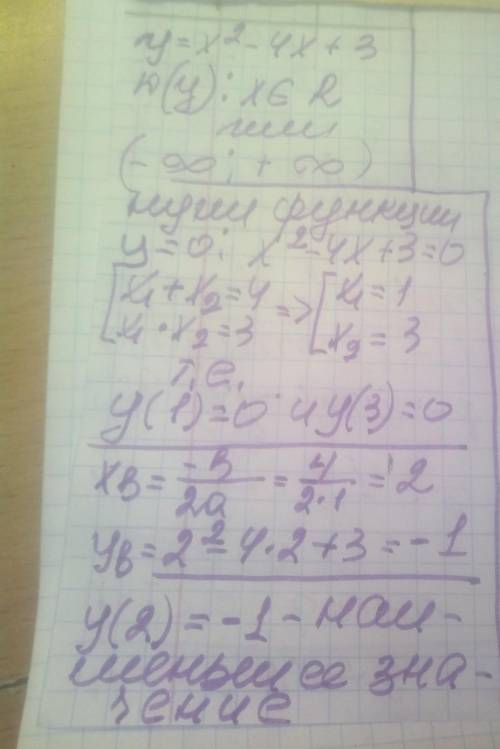 y = x² - 4x + 3
D(y): x ∈ R
или
(-∞; +∞)
нули функции
y = 0: x² - 4x + 3 = 0
[x₁ + x₂ = 4 => [x₁ = 1
[x₁ · x₂ = 3 [x₂ = 3
т.е.
y(1) = 0 и y(3) = 0
xв = -в/2a = 4/2·1 = 2
yв = 2² - 4·2 + 3 = -1
y(2) = -1 - наи-
меньшее зна-
чение